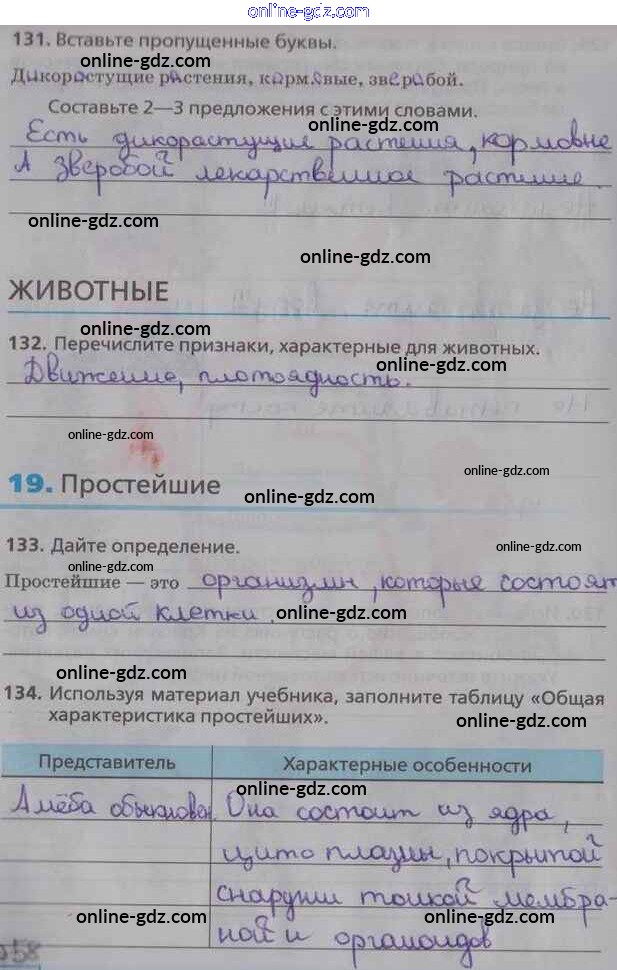 online-gdz.com
131. Вставьте пропущенные буквы.
online-gdz.com
Дикорастущие растения, кормовые, зверобой.
online-gdz.com
Составьте 2—3 предложения с этими словами.
online-gdz.com
Есть дикорастущие растения, кормовые
А зверобой лекарственное растение.
online-gdz.com
online-gdz.com
online-gdz.com
ЖИВОТНЫЕ
online-gdz.com
132. Перечислите признаки, характерные для животных.
online-gdz.com
Движение, плотоядность.
online-gdz.com
online-gdz.com
19. Простейшие
online-gdz.com
133. Дайте определение.
online-gdz.com
online-gdz.com
Простейшие — это организмы, которые состоят
из одной клетки.
online-gdz.com
online-gdz.com
134. Используя материал учебника, заполните таблицу «Общая
характеристика простейших».
online-gdz.com
Представитель Характерные особенности
online-gdz.com
Амёба обыкновен Она состоит из ядра,
цитоплазмы, покрытой
снаружи тонкой мембра-
online-gdz.com
online-gdz.com
ной и органоидов
58
online-gdz.com